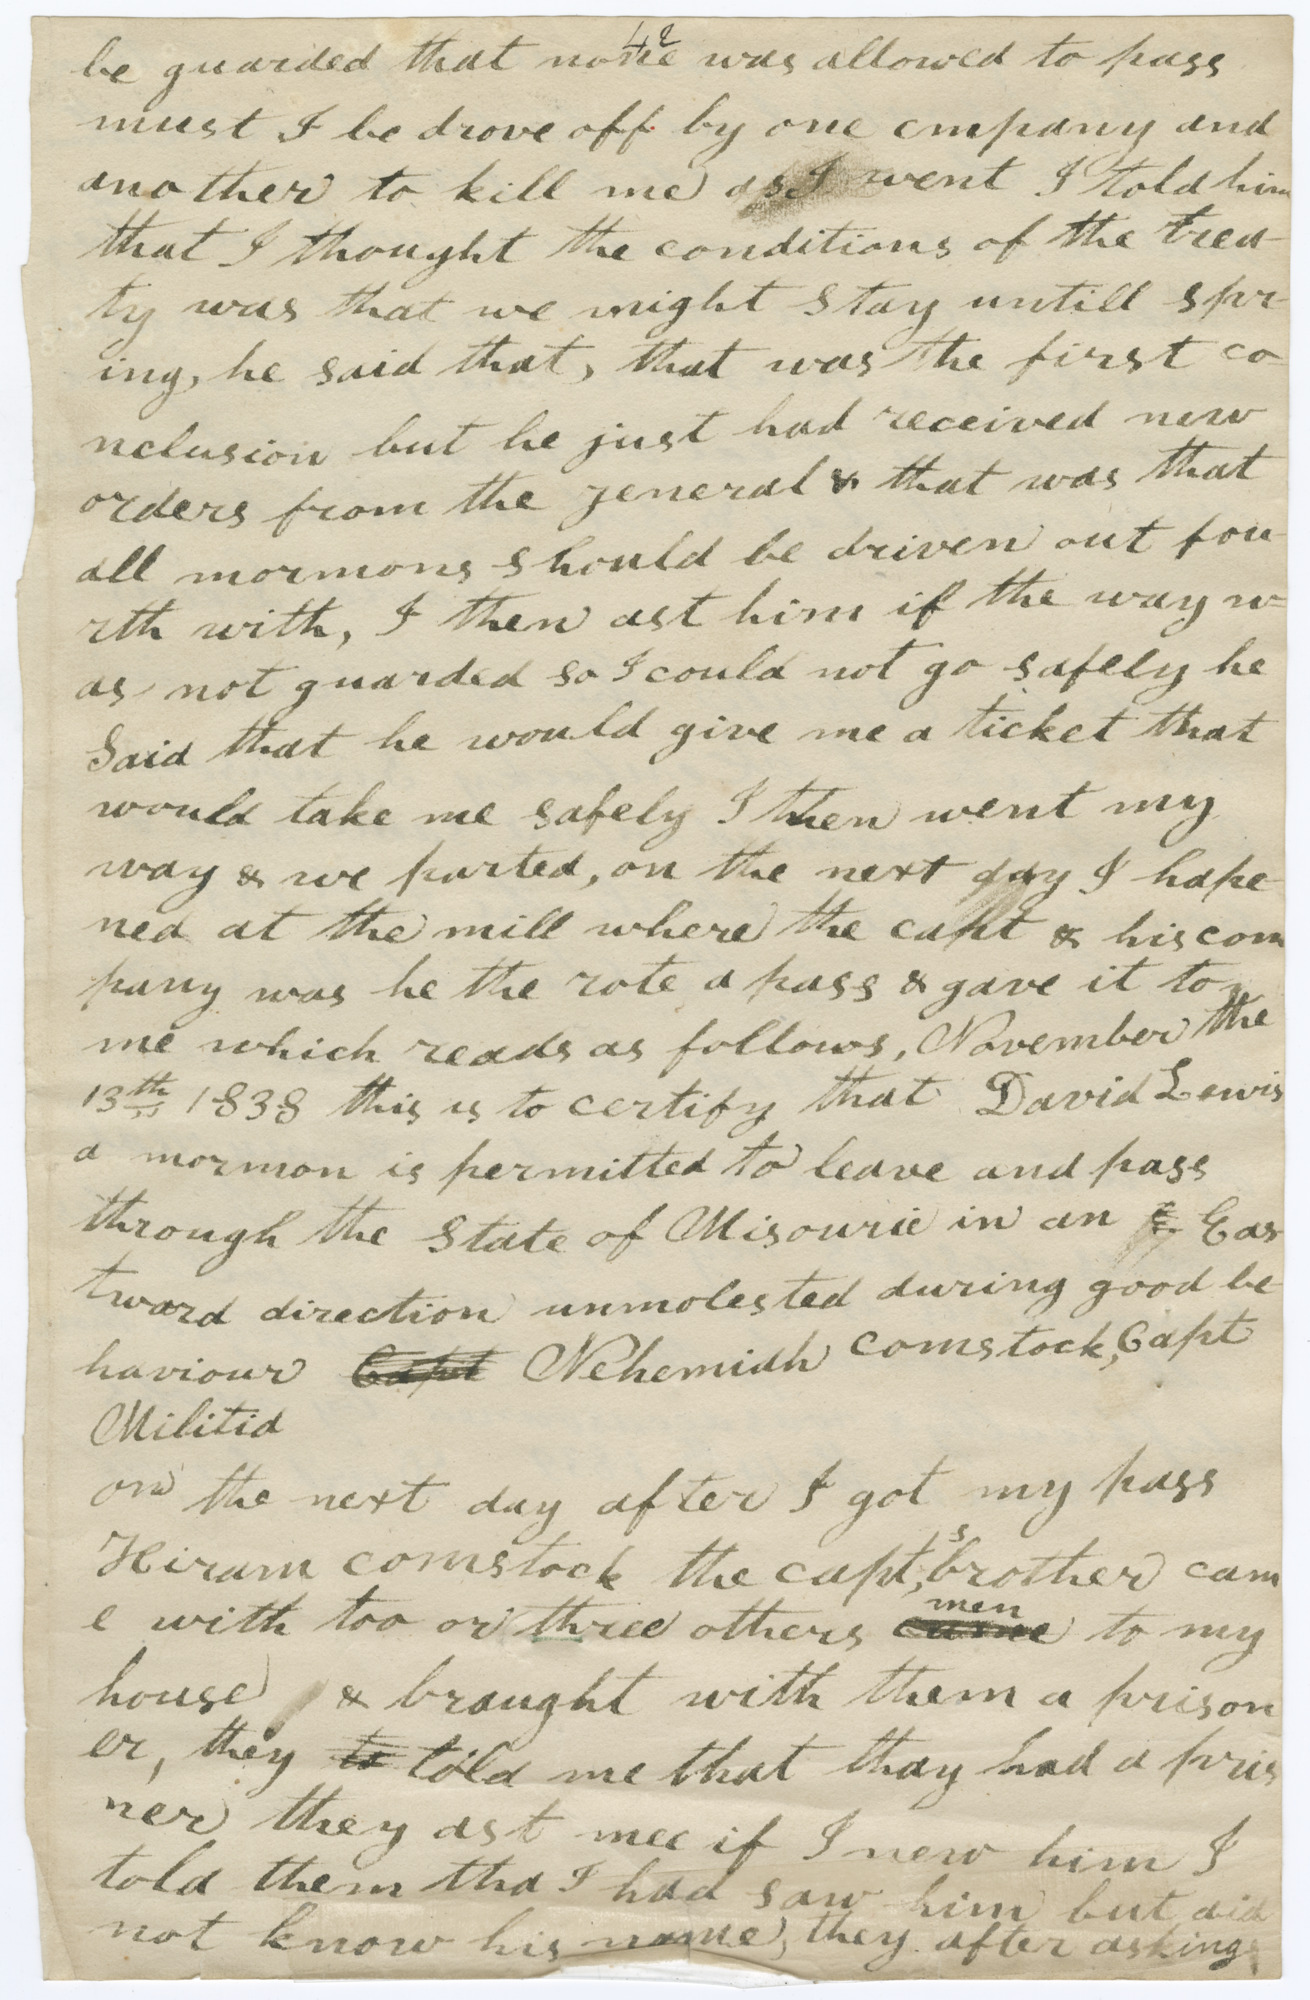 42
be guarded that none was allowed to pass
must I be drove off by one cmpany and
another to kill me as I went I told him
that I thought the conditions of the trea-
ty was that we might stay untill spr-
ing, he said that, that was the first co-
nclusion but he just had received new
orders from the general & that was that
all mormons should be driven out fou-
rth with, I then ast him if the way w-
as not guarded so I could not go safely he
Said that he would give me a ticket that
would take me safely I then went my
way & we parted, on the next day I hape-
ned at the mill where the capt & his com
pany was he the rote a pass & gave it to
me which reads as follows, November the
13th 1838 this is to certify that David Lewis
a mormon is permitted to leave and pass
through the State of Misourie in an E Eas
tward direction unmolested during good be
haviour Capt Nehemiah comstock, Capt
Militia
on the next day after I got my pass
Hiram comstock the capt,s brother cam
e with too or three others came men to my
house & braught with them a prison
er, they to told me that thay had a pris
ner they ast mee if I new him I
told them tha I had saw him but did
not know his name, they after asking